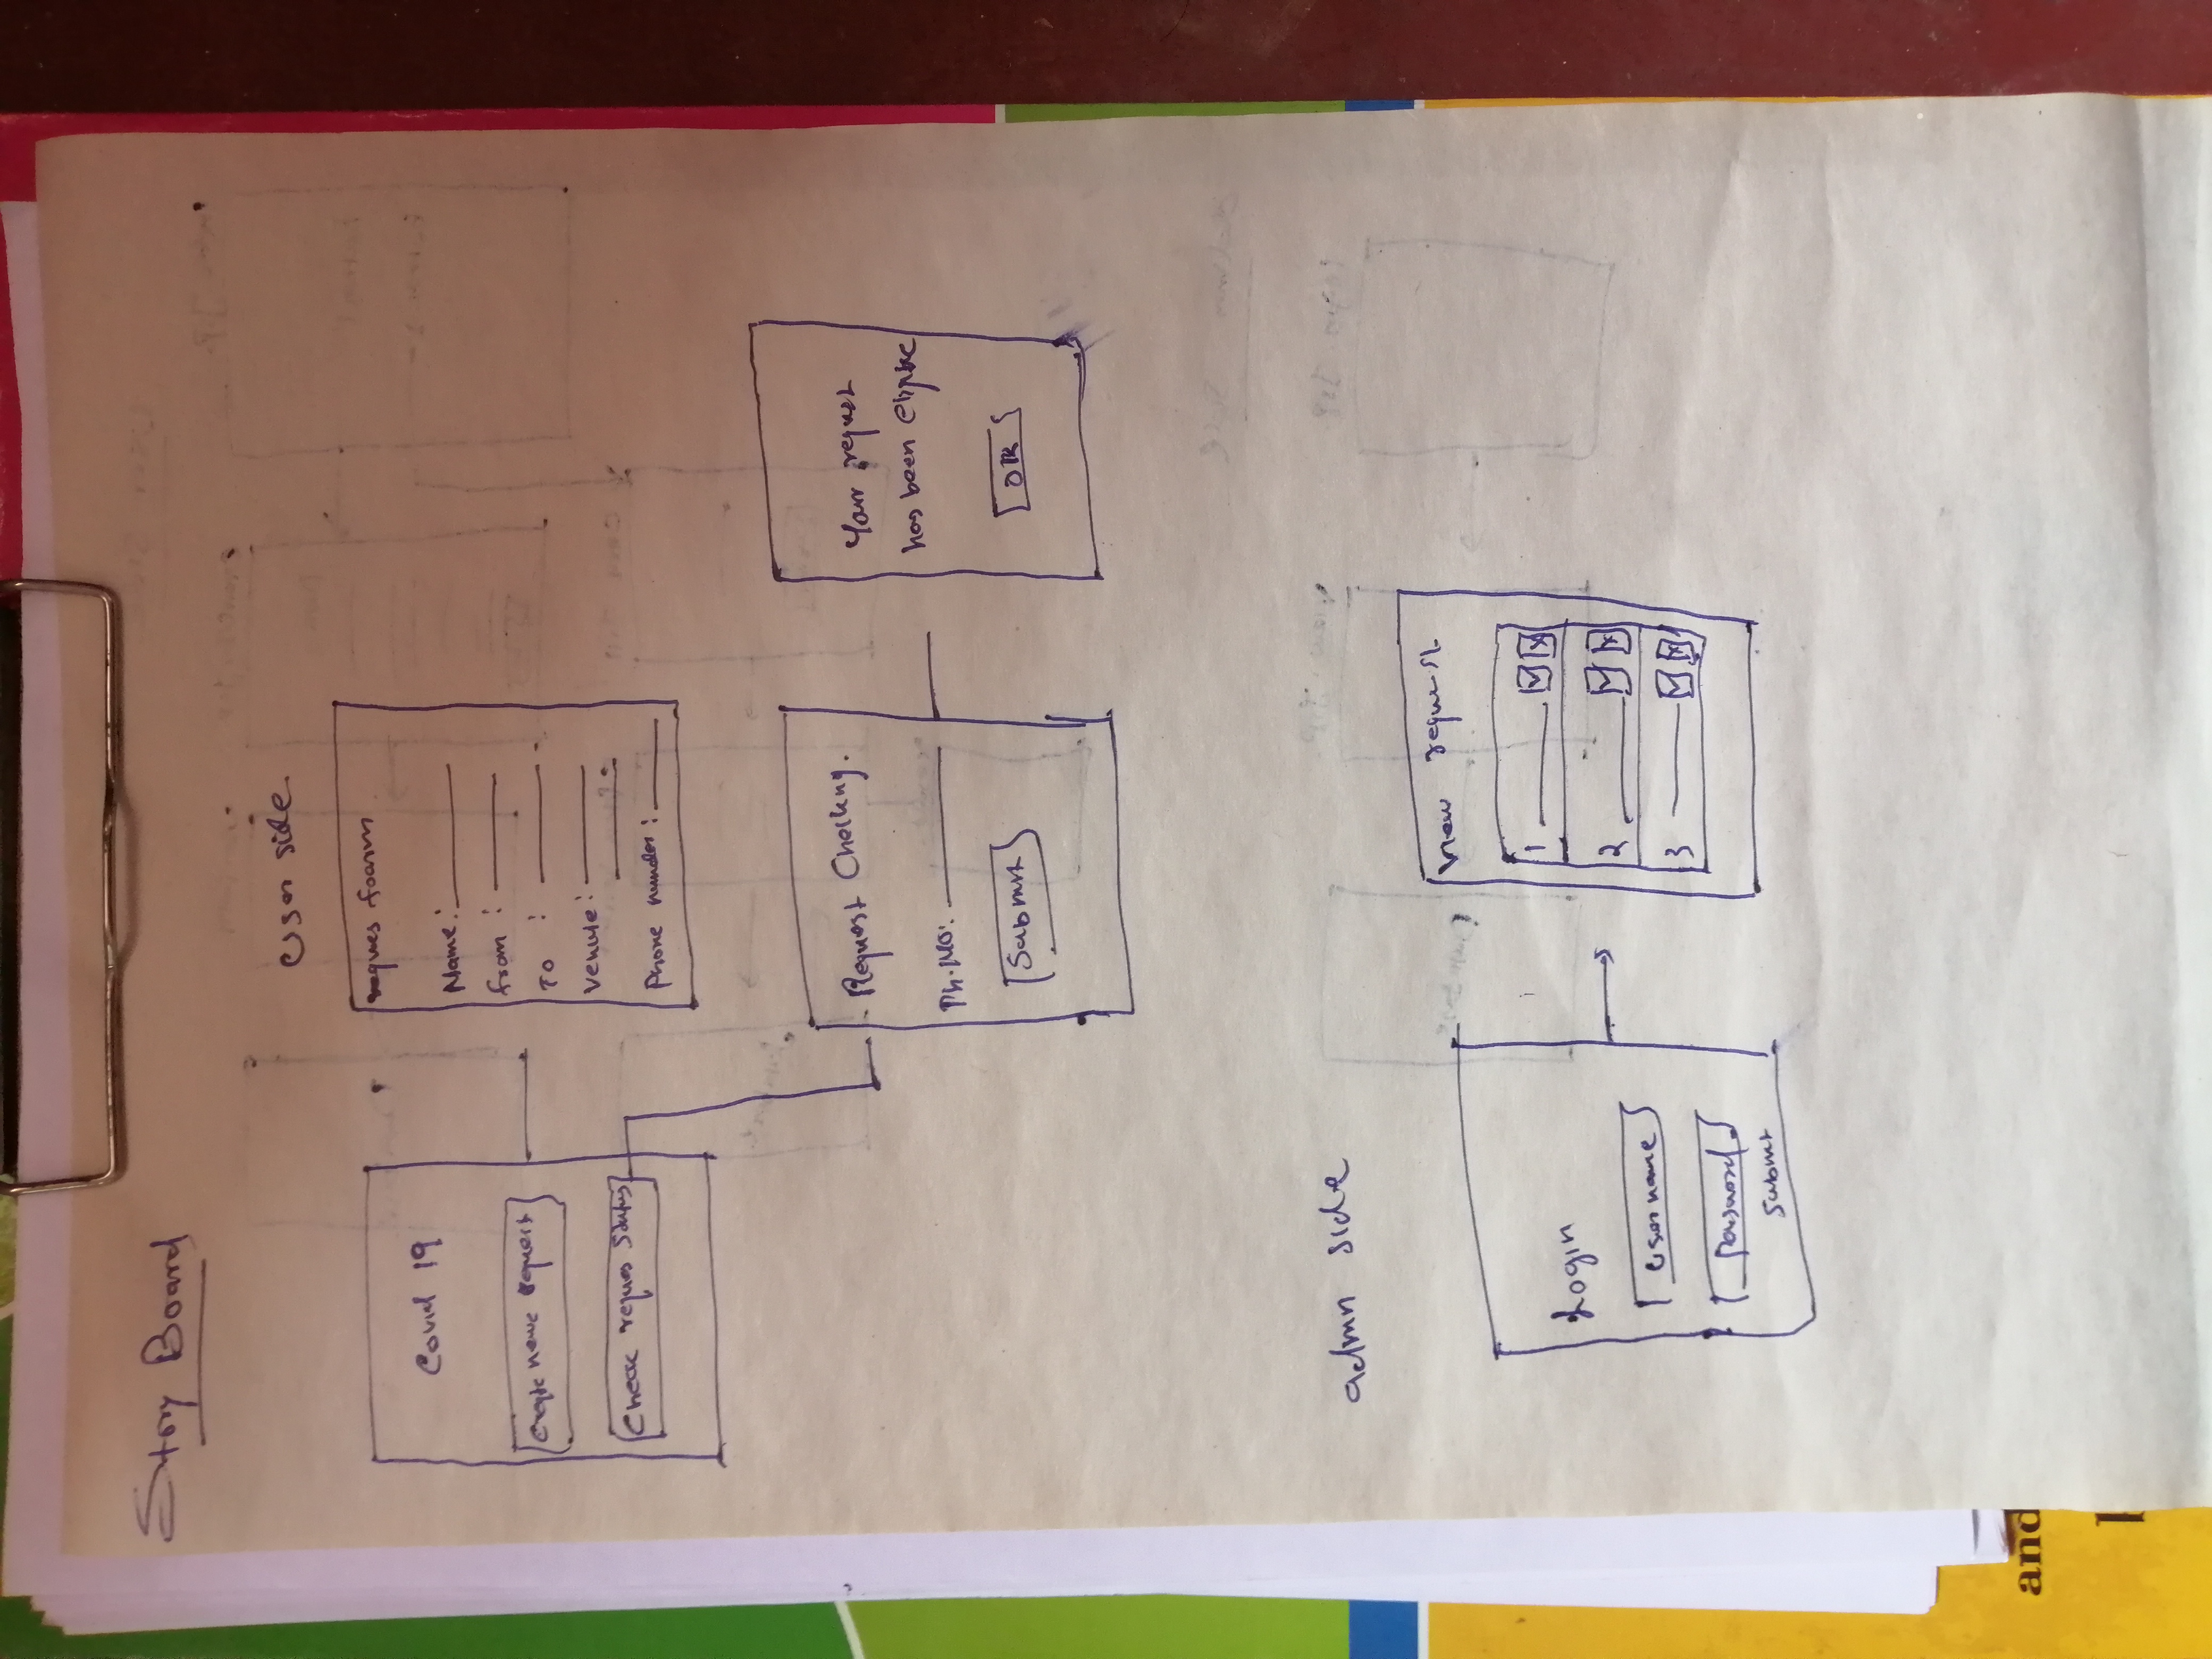 Story Board
User side
Covid 19
Create new request
Check reques status
reques foarm
Name:
from :
To :
venule:
Phone number:
Request Checking.
Ph.No:
Submit
Your request
has been
OK
admn side
Login
username
password
submit
new request
1
2
3
and